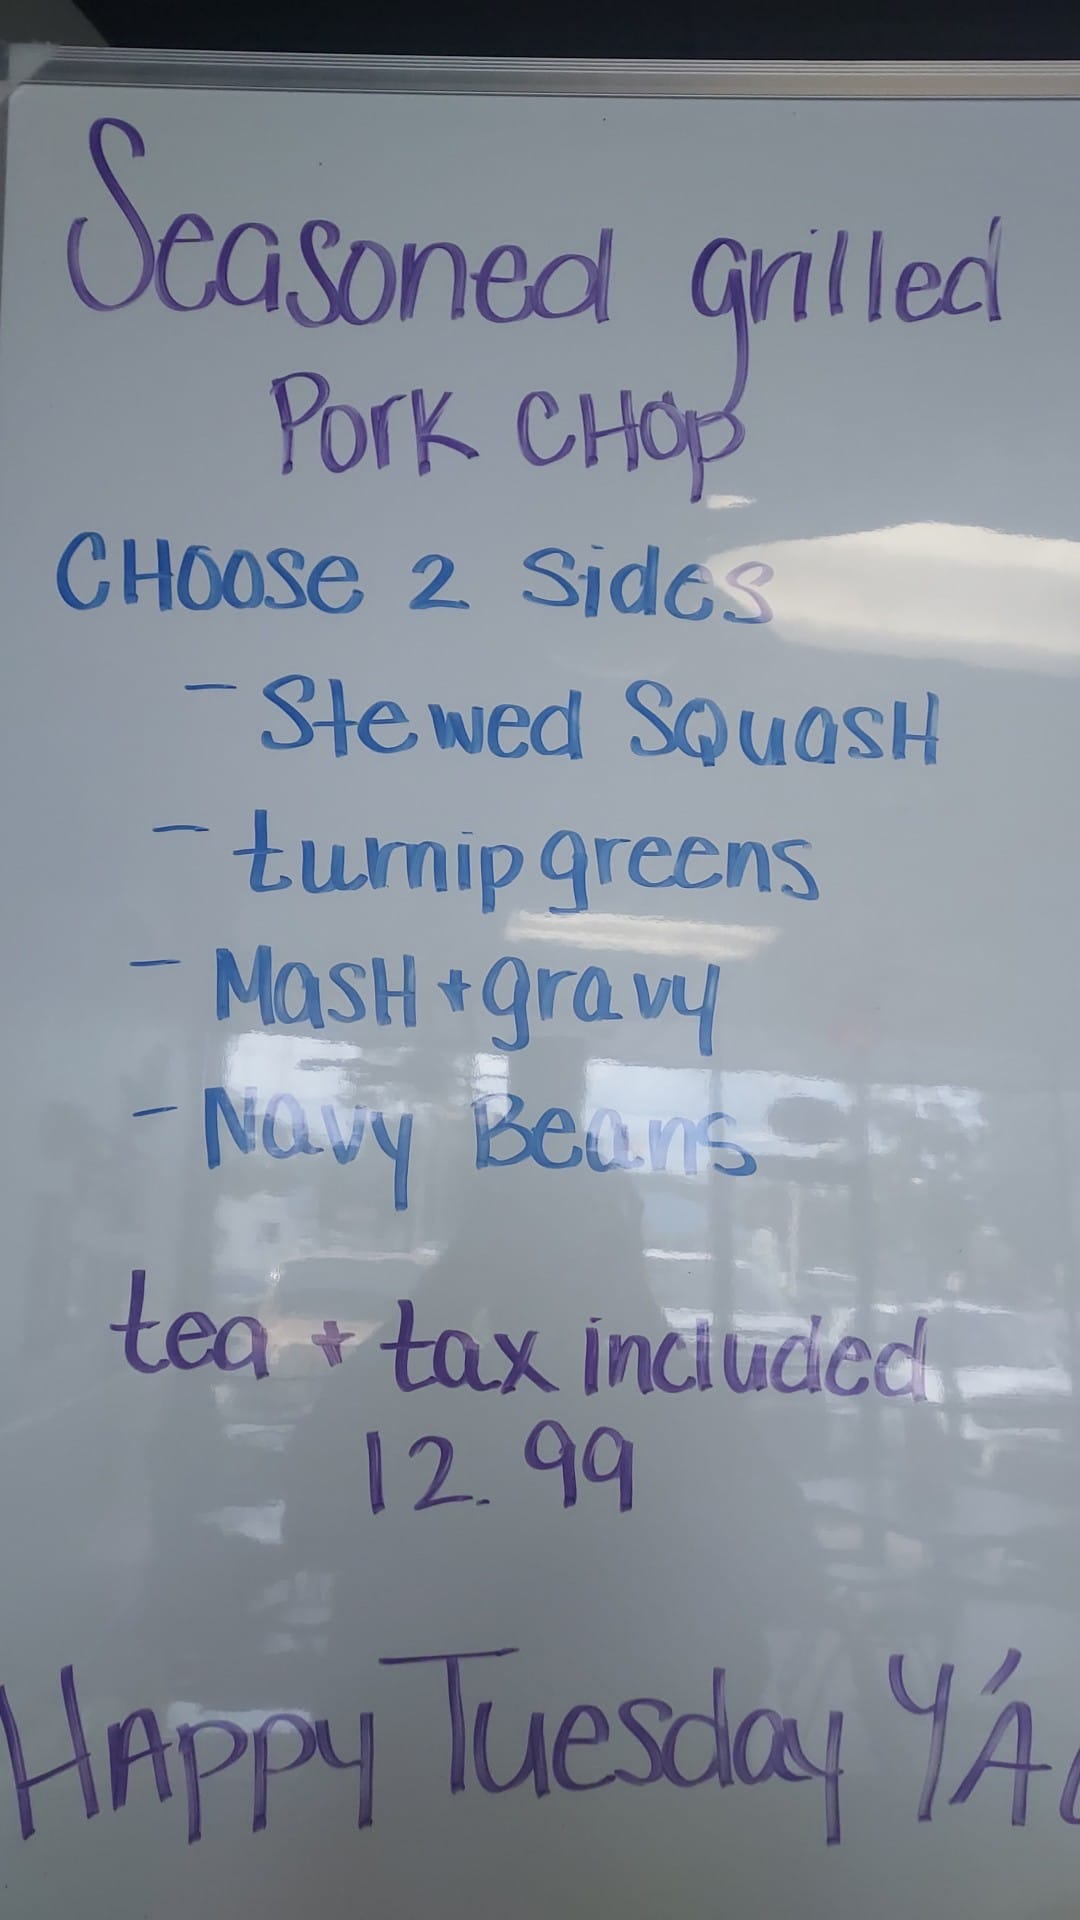 Seasoned grilled
Pork CHOp
CHOOSE 2 Sides
- Stewed SQuasH
- turnip greens
- MasH + gravy
- Navy Beans
tea + tax included
12.99
HAppy Tuesday Y'A